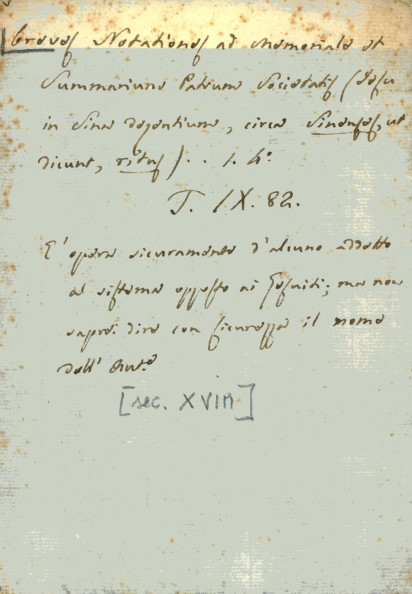 Breves Notationes ad Memoriale et
Summarium Patrum Societatis Jesu
in Sina degentium, circa Sinenses, ut
dicunt, ritus) . . 1. 4º
T. IX. 82.
E' opera sicuramente d'alcuno addetto
al sistema opposto ai Gesuiti; ma non
saprei dire con sicurezza il nome
dell' Aut.e
[sec. XVIII]